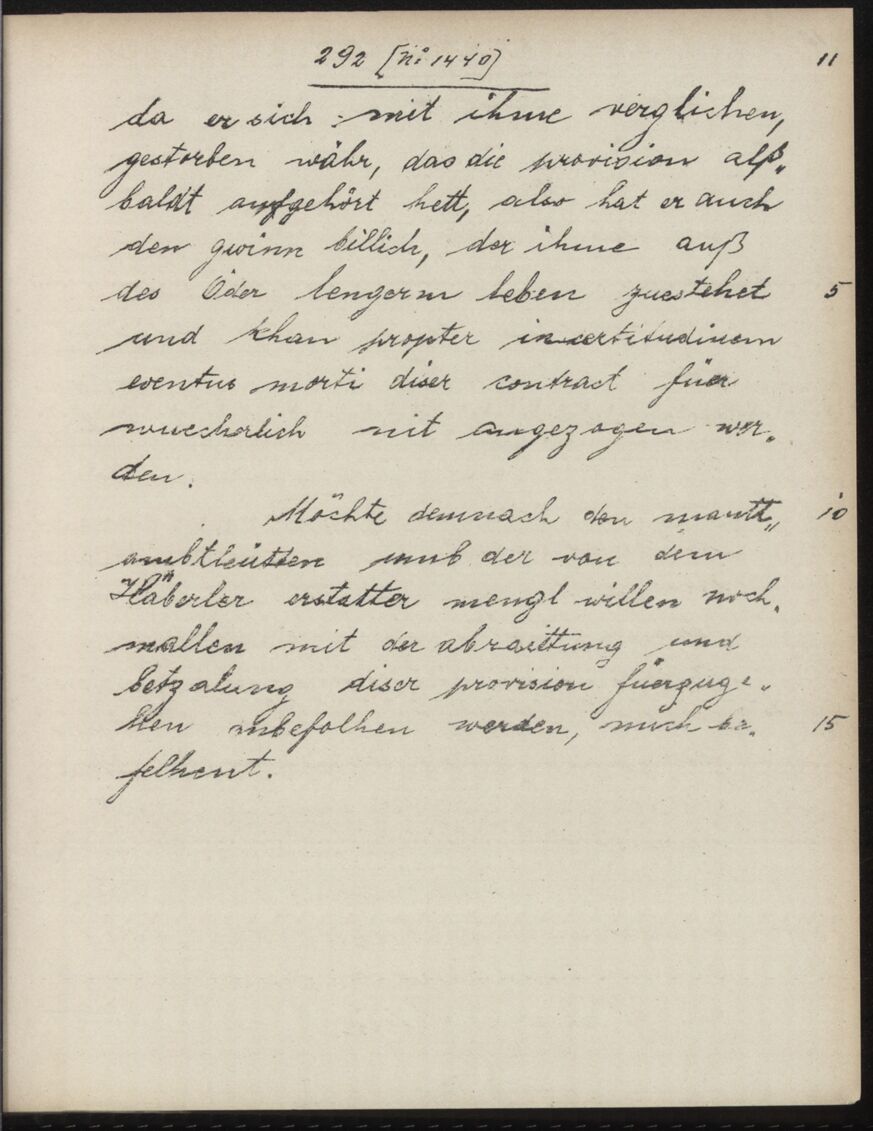 292 [No 1440] 11
da er sich mit ihme verglichen,
gestorben währ, das die provision alß„
baldt aufgehört hett, also hat er auch
den gwinn billich, der ihme auß
des Öder lengerm leben zuestehet 5
und khan propter incertitudinem
eventus morti diser contract füer
wuecherlich nit angezogen wer„
den.
Möchte demnach den mautt„ 10
ambtleütten umb der von dem
Häberler erstatter mengl willen noch„
mallen mit der abraittung und
betzalung diser provision füerzuge„
hen anbefolhen werden, mich be„ 15
felhent.